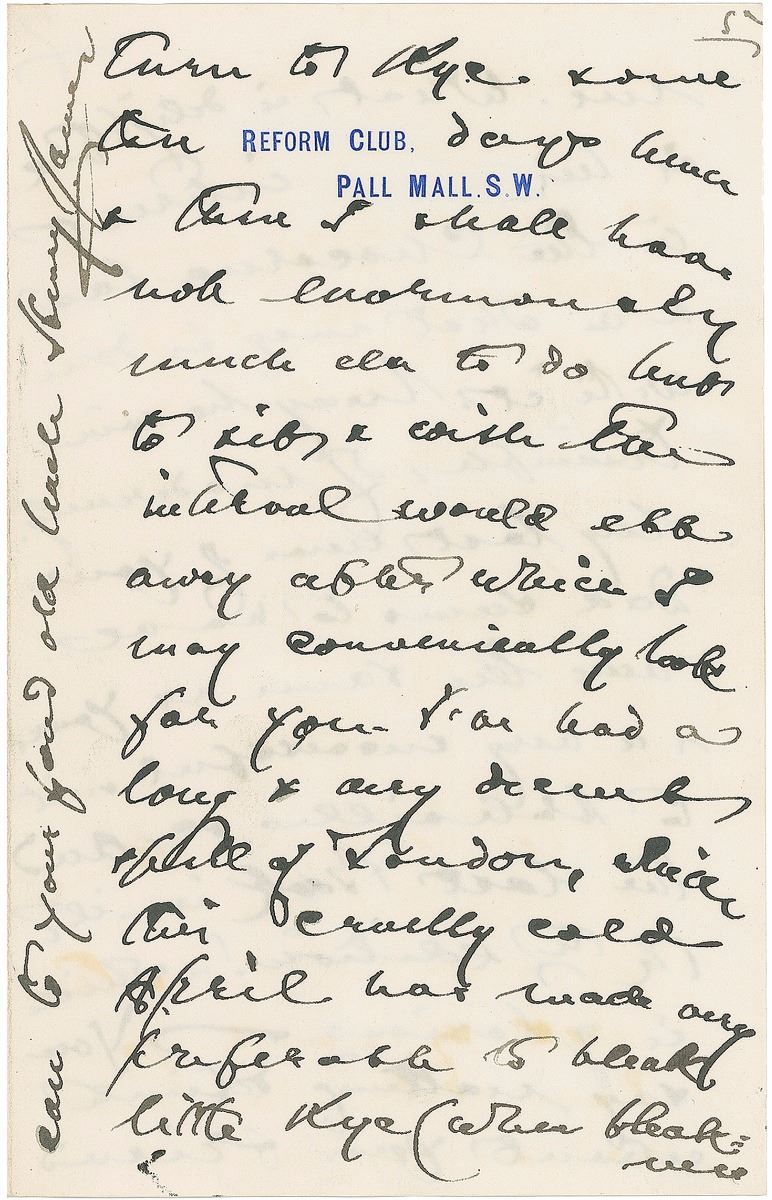 5)
turn to Rye some
ten days hence
REFORM CLUB,
PALL MALL. S.W.
& then I shall have
not enormously
much else to do but
to sit & wish the
interval would ebb
away after which I
may conveniently look
for you. I've had a
long & very decent
spell of London, which
this cruelly cold
April has made very
preferable to bleak
little Rye (when bleak=
ness
can to your fond old uncle Henry James